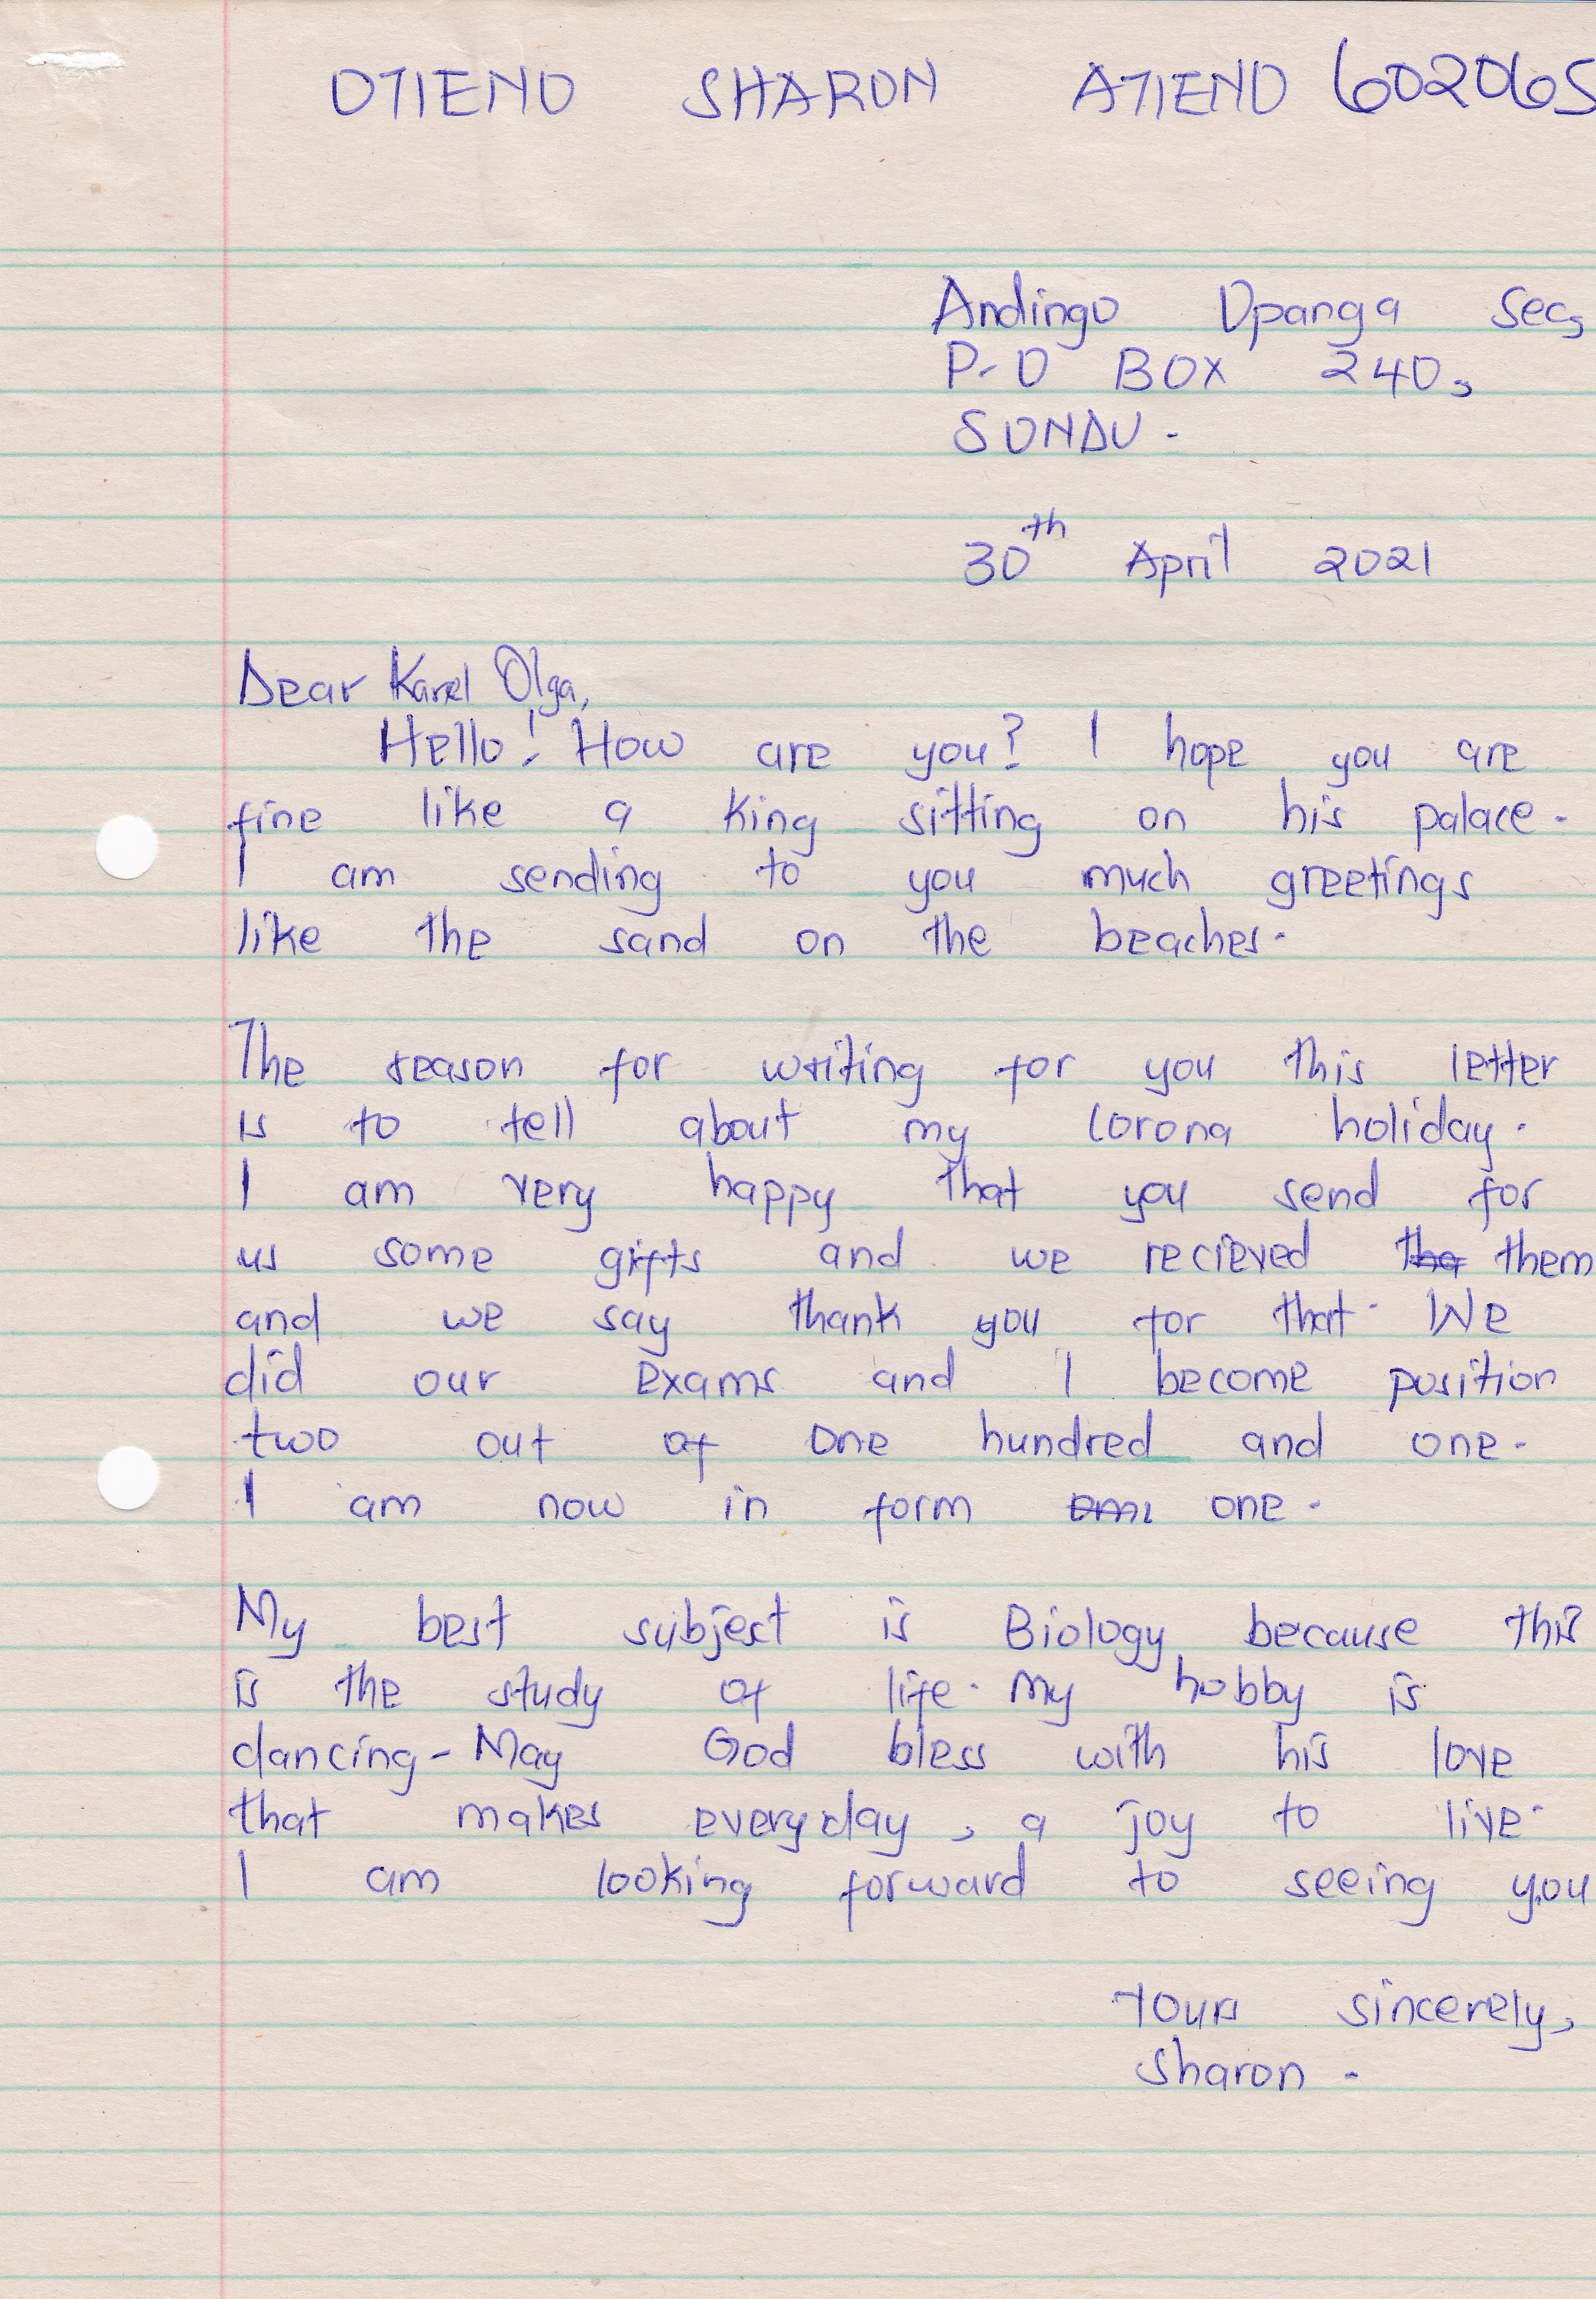 OTIENO SHARON ATIENO 602065
Andingo Opanga Sec,
P.O BOX 240,
SONDU.
30th April 2021
Dear Karel Olga,
Hello! How are you? I hope you are
fine like a king sitting on his palace.
I am sending to you much greetings
like the sand on the beaches.
The reason for writing for you this letter
is to tell about my corona holiday.
I am very happy that you send for
us some gifts and we recieved them
and we say thank you for that. We
did our exams and I become position
two out of one hundred and one.
I am now in form one.
My best subject is Biology because this
is the study of life. My hobby is
dancing. May God bless with his love
that makes everyday, a joy to live.
I am looking forward to seeing you
Yours sincerely,
Sharon.